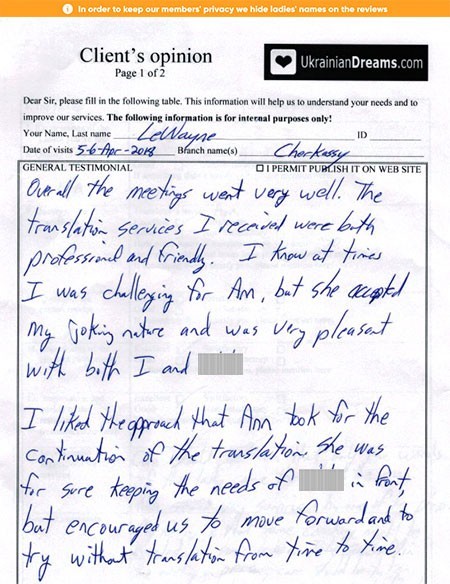 In order to keep our members' privacy we hide ladies' names on the reviews
Client's opinion
Page 1 of 2
UkrainianDreams.com
Dear Sir, please fill in the following table. This information will help us to understand your needs and to
improve our services. The following information is for internal purposes only!
Your Name, Last name LeWayne ID
Date of visits 5-6-Apr-2018 Branch name(s) Cherkassy
GENERAL TESTIMONIAL I PERMIT PUBLISH IT ON WEB SITE
Overall the meetings went very well. The
translation services I received were both
professional and friendly. I know at times
I was challenging for Ann, but she accepted
my joking nature and was very pleasant
with both I and
I liked the approach that Ann took for the
continuation of the translation. She was
for sure keeping the needs of in front,
but encouraged us to move forward and to
try without translation from time to time.